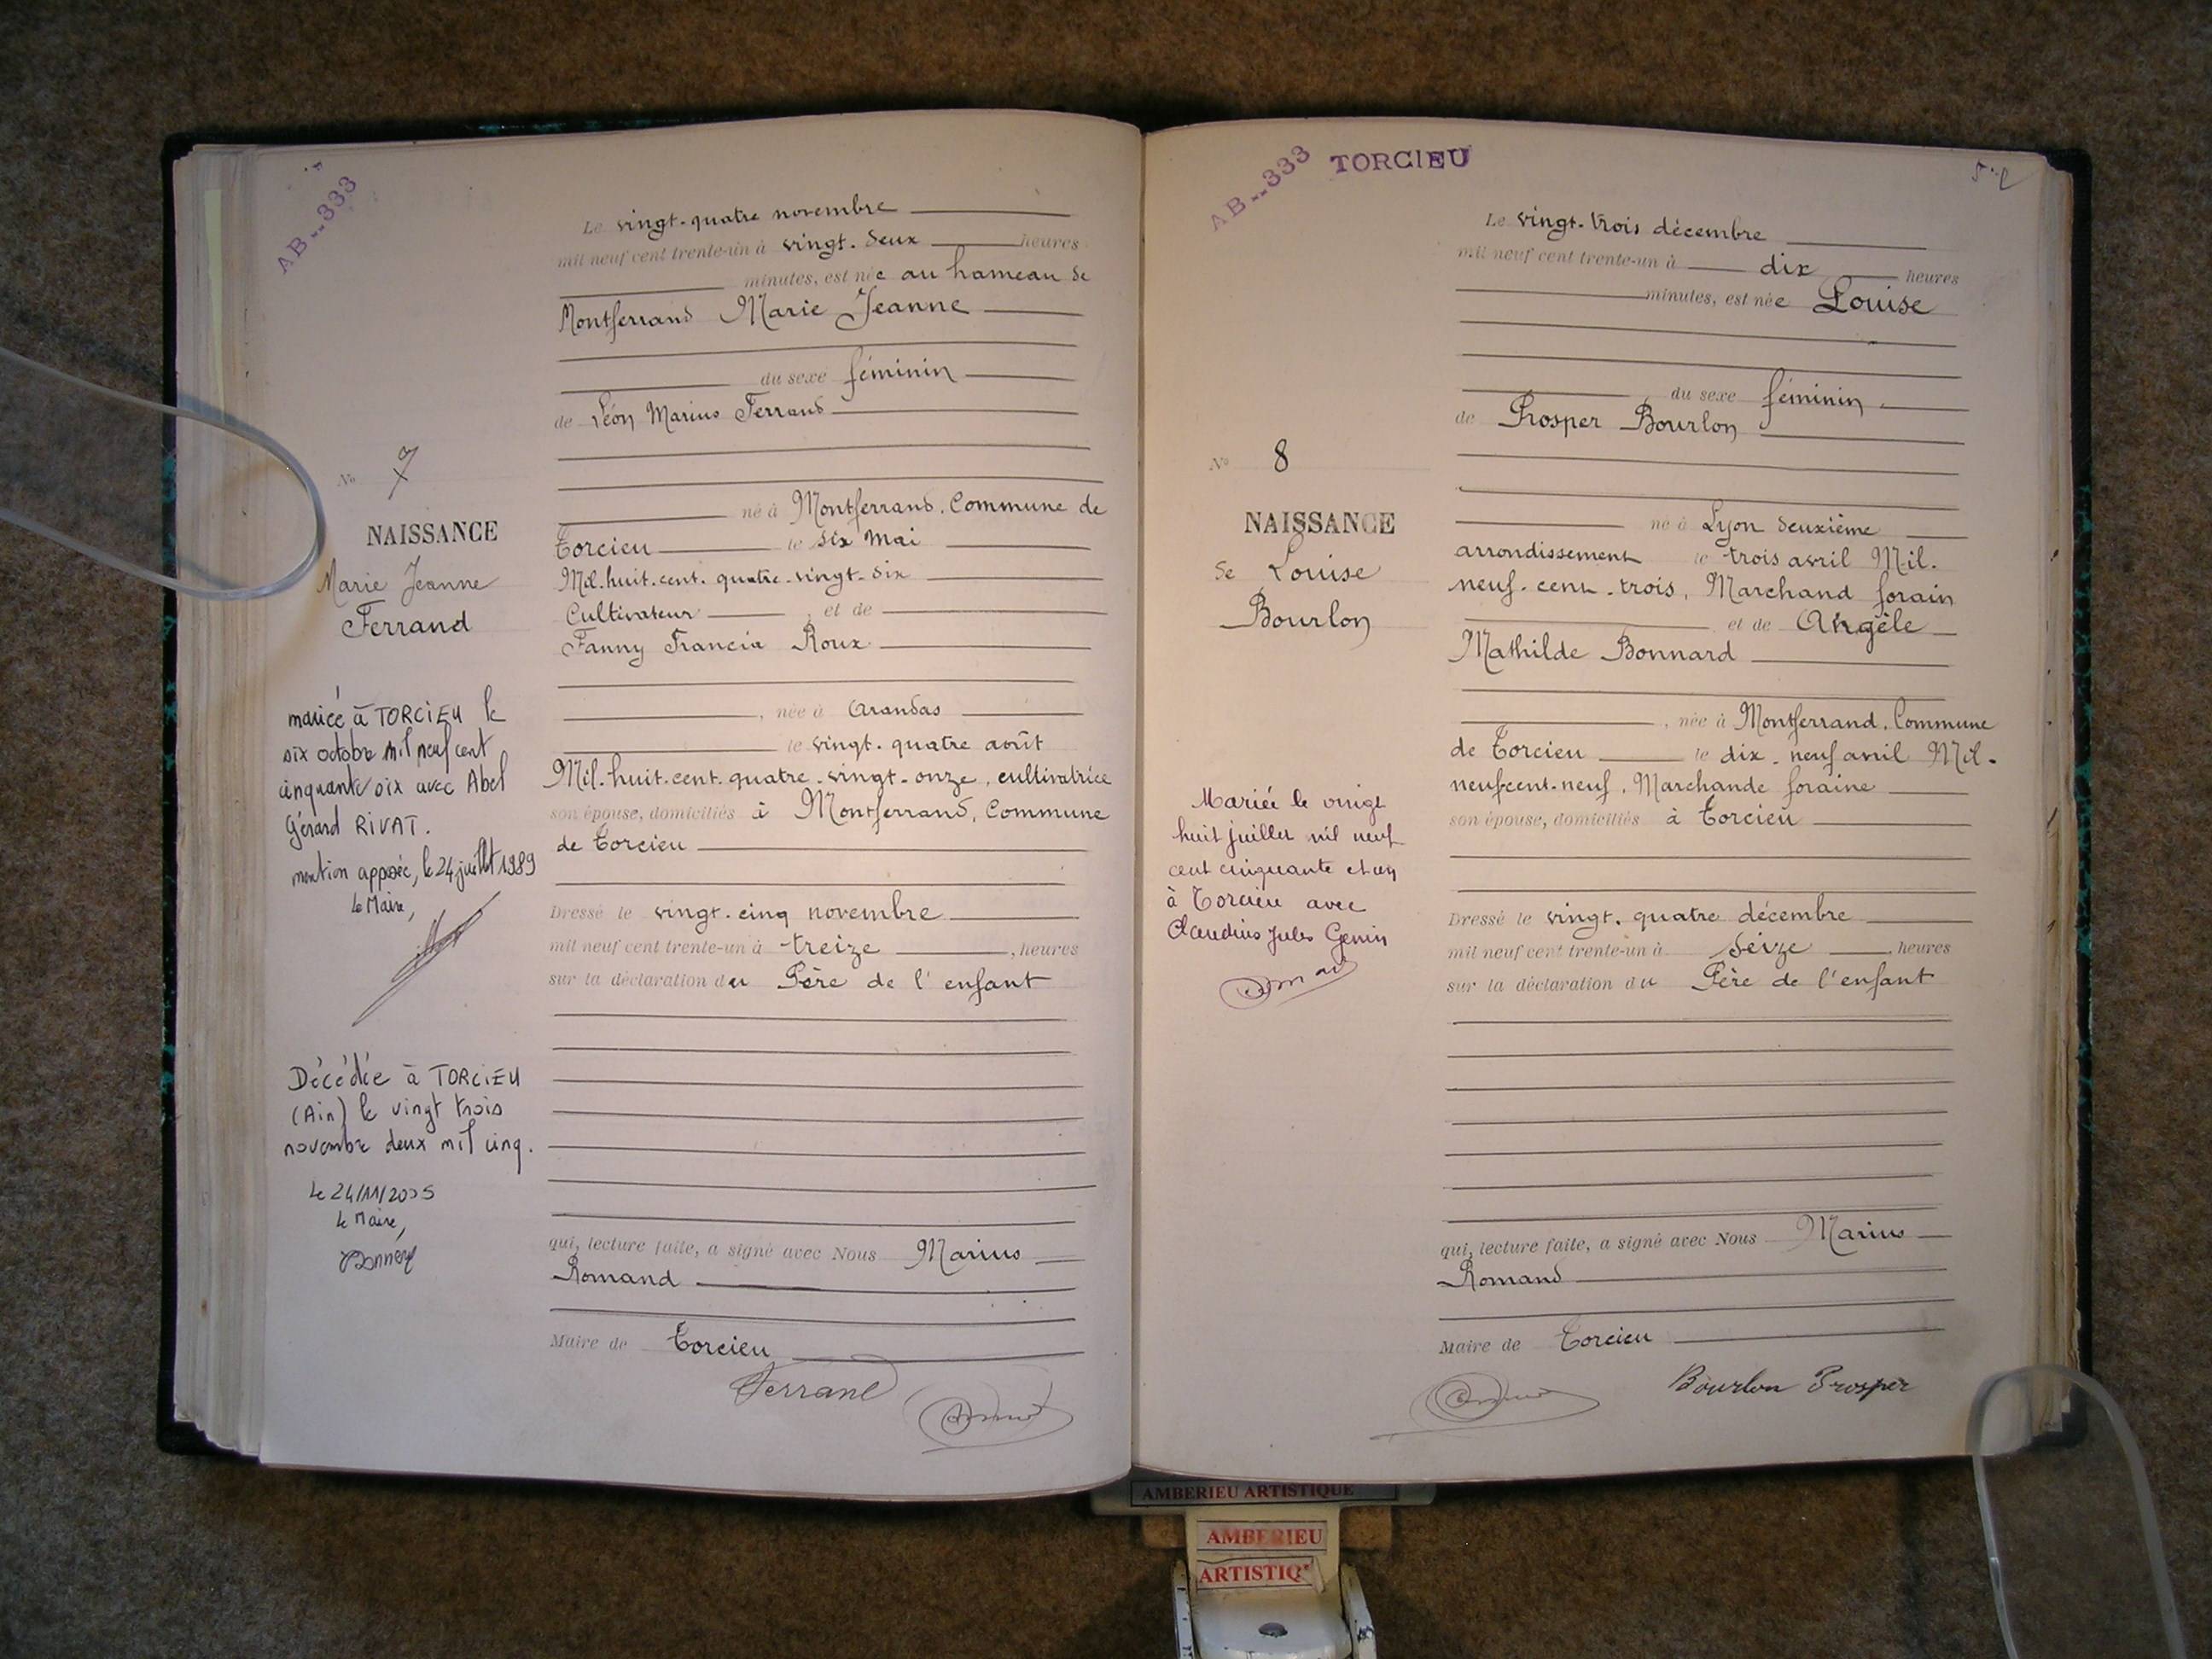 AB--333
Le vingt-quatre novembre
mil neuf cent trente-un à vingt-deux heures
minutes, est née au hameau de
Montferrand Marie Jeanne
du sexe féminin
de Léon Marius Ferrand
né à Montferrand, Commune de
Torcieu le six Mai
Mil-huit-cent-quatre-vingt-six
Cultivateur, et de
Fanny Francia Roux
, née à Arandas
le vingt-quatre août
Mil-huit-cent-quatre-vingt-onze, cultivatrice
son épouse, domiciliés à Montferrand, Commune
de Torcieu
Dressé le vingt-cinq novembre
mil neuf cent trente-un à treize, heures
sur la déclaration du Père de l'enfant
qui, lecture faite, a signé avec Nous Marius
Romand
Maire de Torcieu
Ferrand
No 7
NAISSANCE
Marie Jeanne
Ferrand
mariée à TORCIEU le
six octobre mil neuf cent
cinquante six avec Abel
Gérard RIVAT.
mention apposée, le 24 juillet 1989
le Maire,
Décédée à TORCIEU
(Ain) le vingt trois
novembre deux mil cinq.
Le 24/11/2005
le Maire,
AB--333 TORCIEU
Le vingt-trois décembre
mil neuf cent trente-un à dix heures
minutes, est née Louise
du sexe féminin
de Prosper Bourlon
né à Lyon deuxième
arrondissement le trois avril Mil-
neuf-cent-trois, Marchand forain
et de Angèle
Mathilde Bonnard
, née à Montferrand, Commune
de Torcieu le dix-neuf avril Mil-
neuf-cent-neuf, Marchande foraine
son épouse, domiciliés à Torcieu
Dressé le vingt-quatre décembre
mil neuf cent trente-un à seize, heures
sur la déclaration du Père de l'enfant
qui, lecture faite, a signé avec Nous Marius
Romand
Maire de Torcieu
Bourlon Prosper
No 8
NAISSANCE
de Louise
Bourlon
Mariée le vingt
huit juillet mil neuf
cent cinquante et un
à Torcieu avec
Claudius Jules Genin
AMBERIEU ARTISTIQUE
AMBERIEU
ARTISTIQ